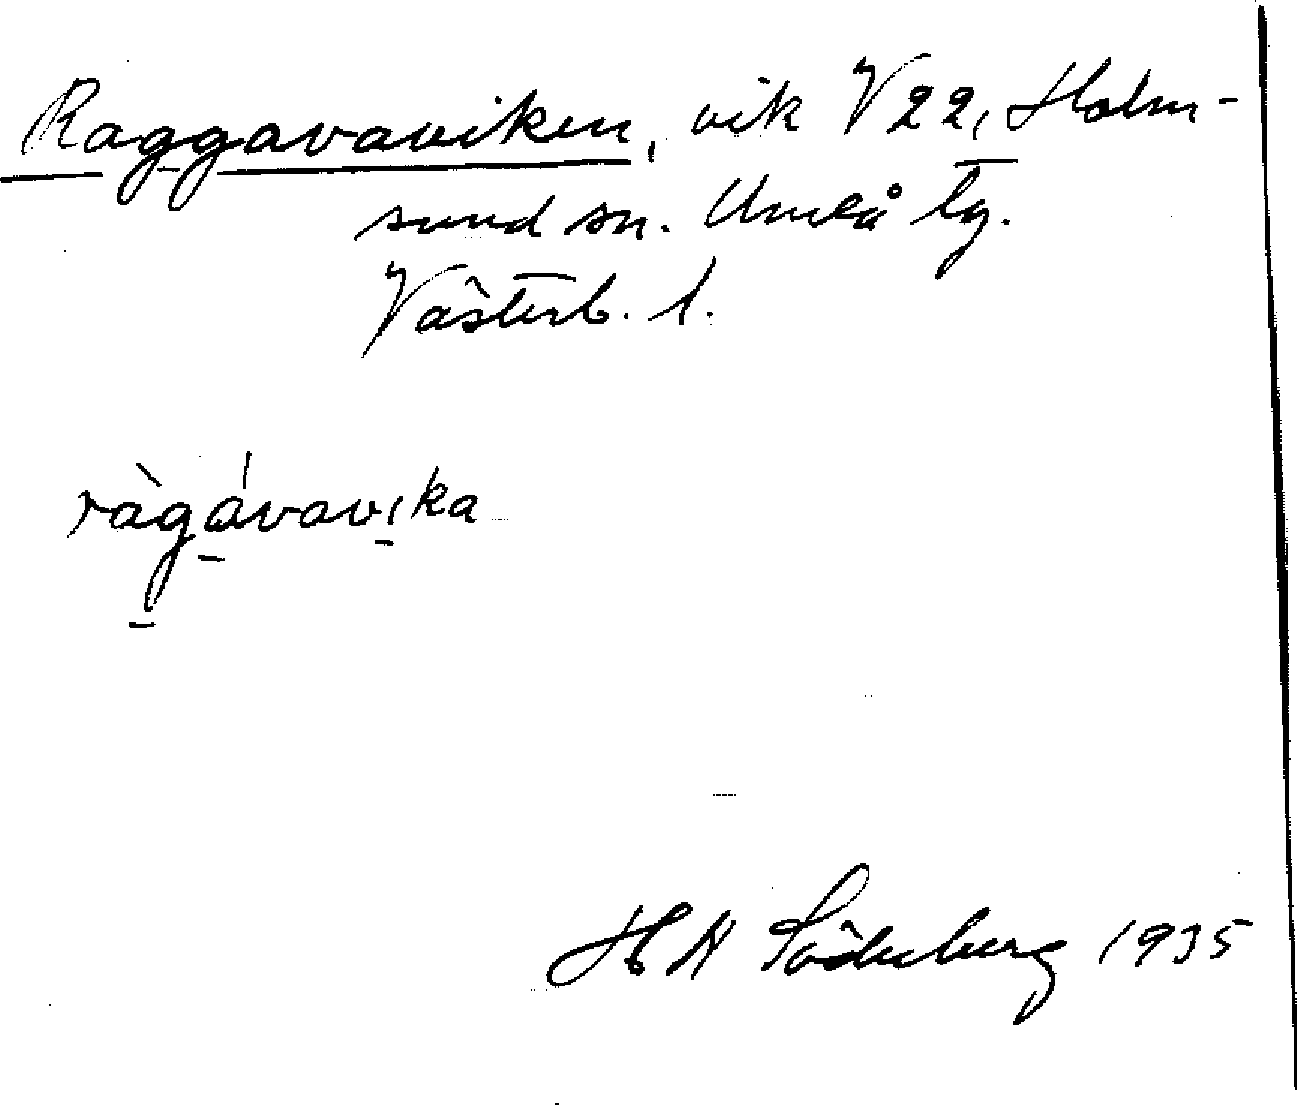 Raggavaviken, vik V 22, Holm-
sund sn. Umeå tg.
Västerb. l.
ràgávavika
H N Söderberg 1935